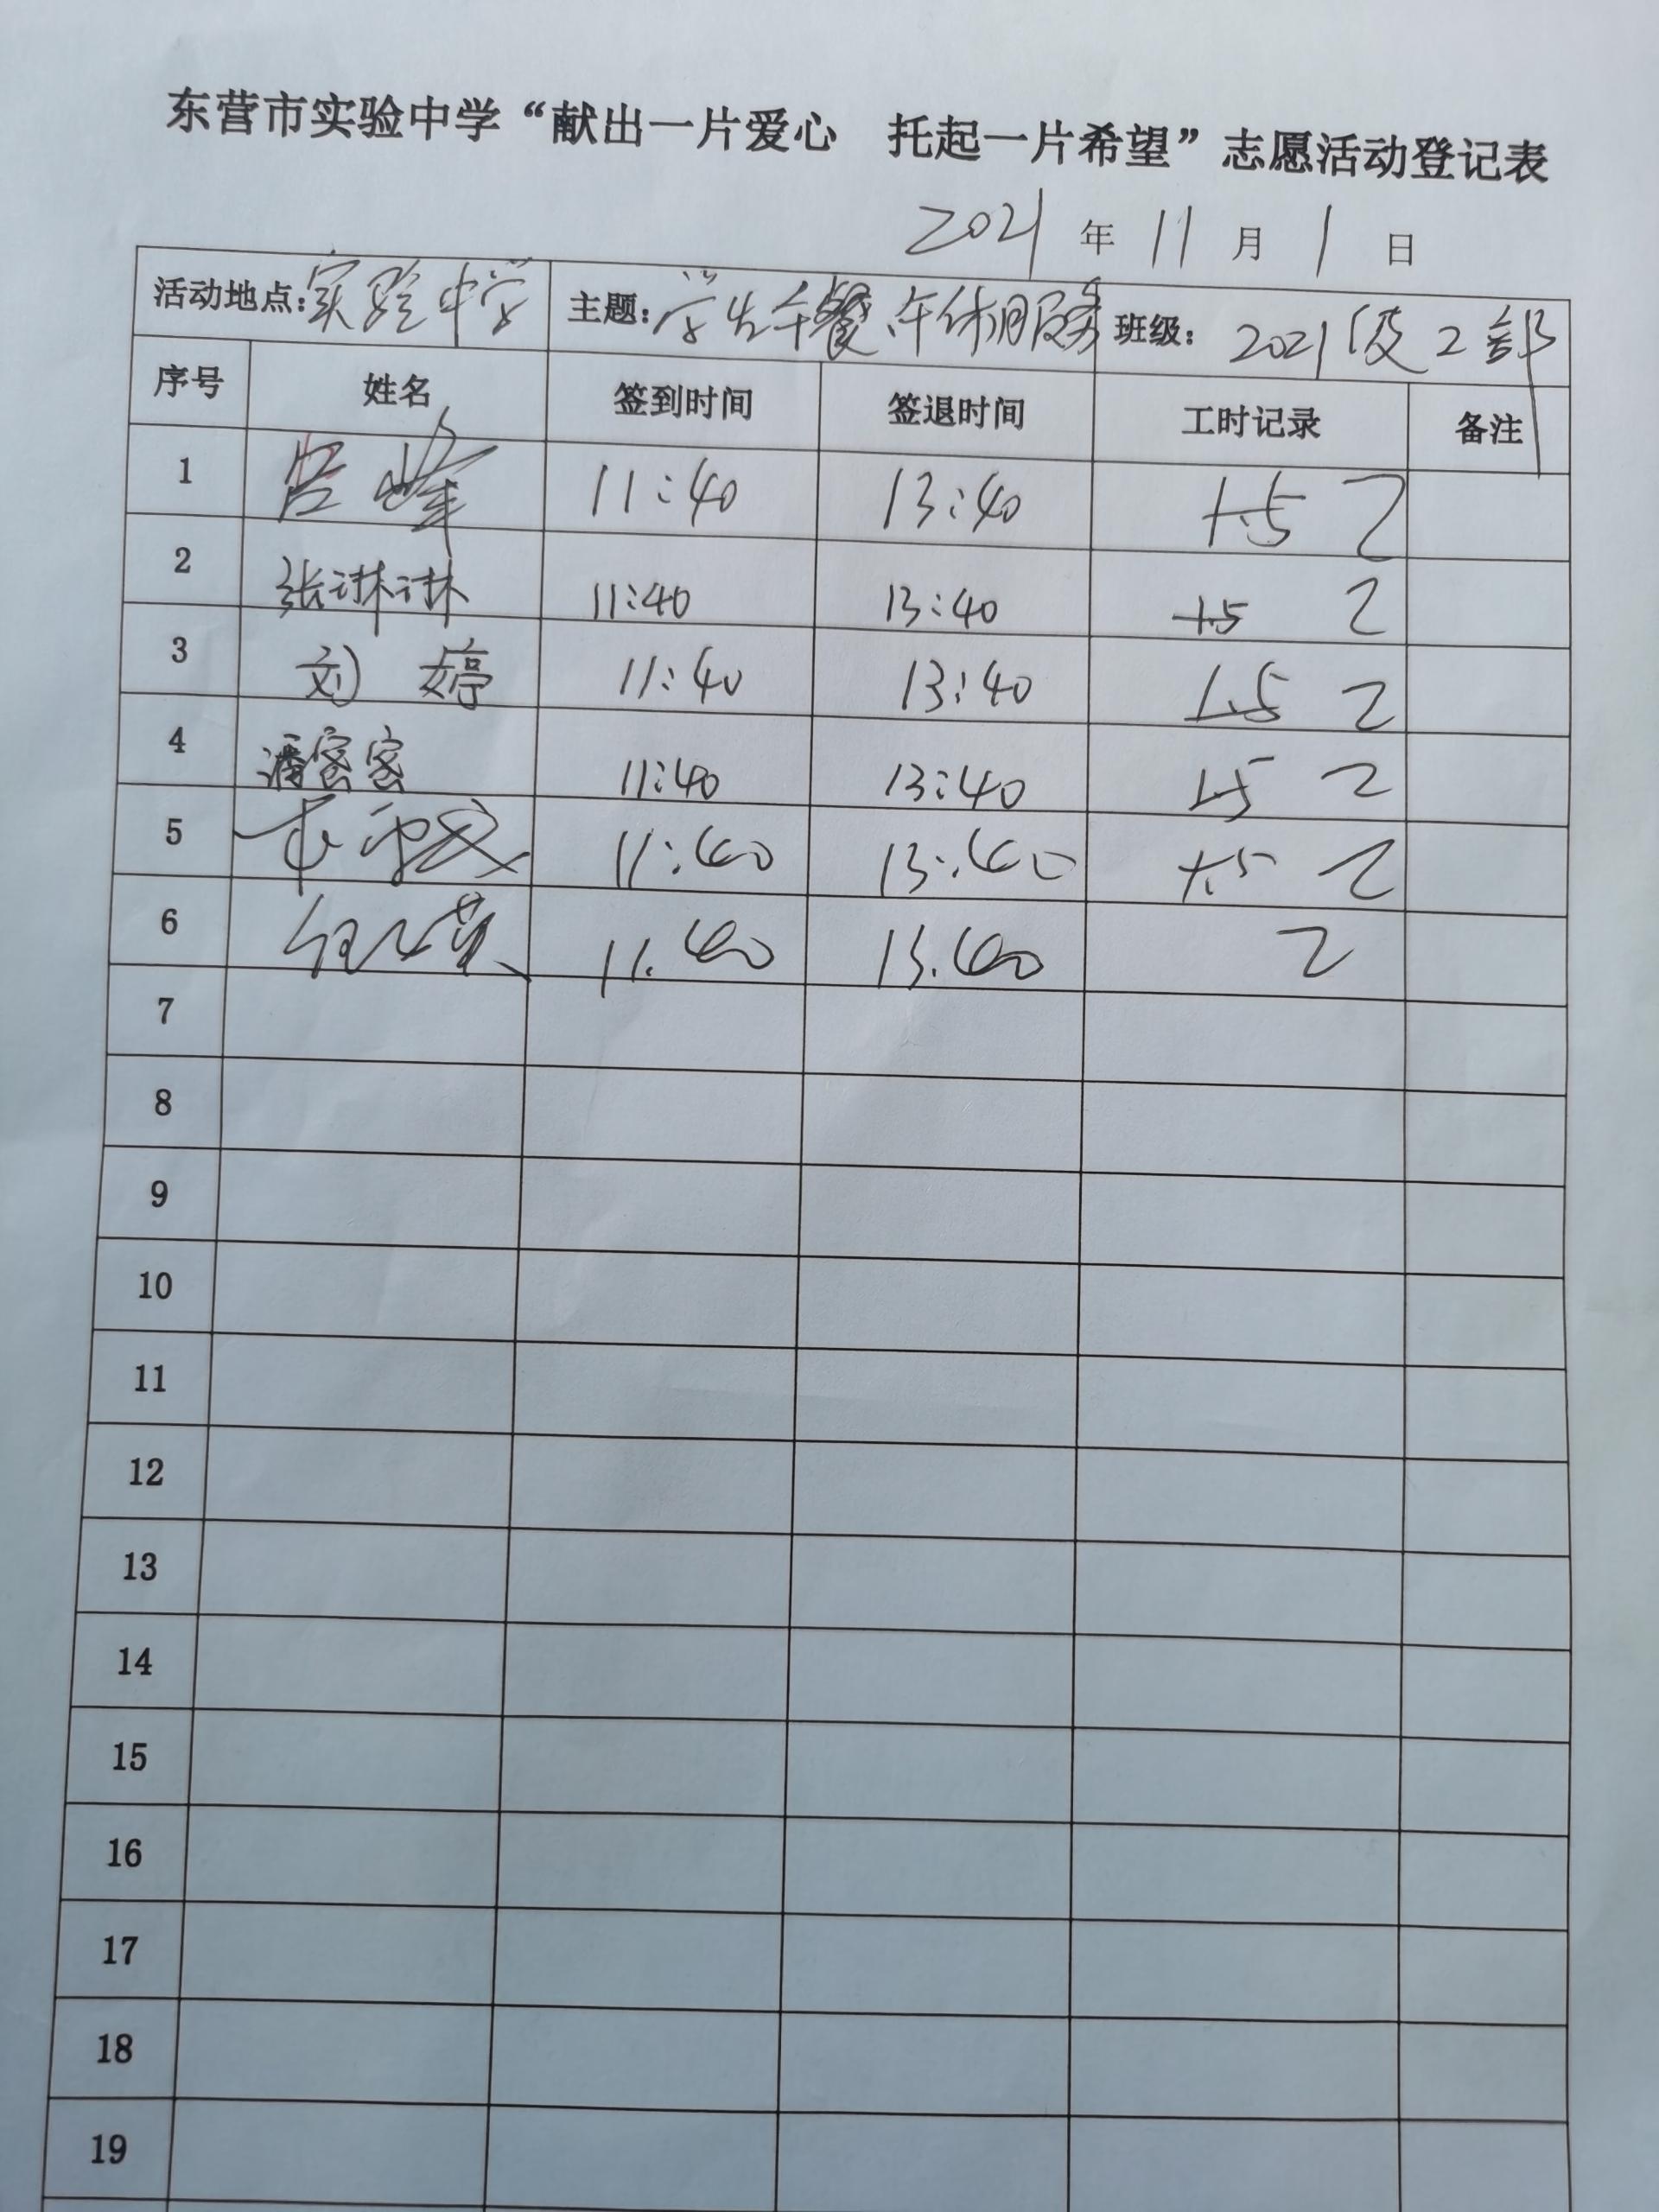 东营市实验中学“献出一片爱心 托起一片希望”志愿活动登记表
2021 年 11 月 1 日
活动地点:实验中学 主题:学生午餐、午休服务 班级: 2021级2部
序号 姓名 签到时间 签退时间 工时记录 备注
1 吕峰 11:40 13:40 1.5 2
2 张琳琳 11:40 13:40 1.5 2
3 刘婷 11:40 13:40 1.5 2
4 潘客客 11:40 13:40 1.5 2
5 11:40 13:40 1.5 2
6 11.40 13.40 2
7
8
9
10
11
12
13
14
15
16
17
18
19